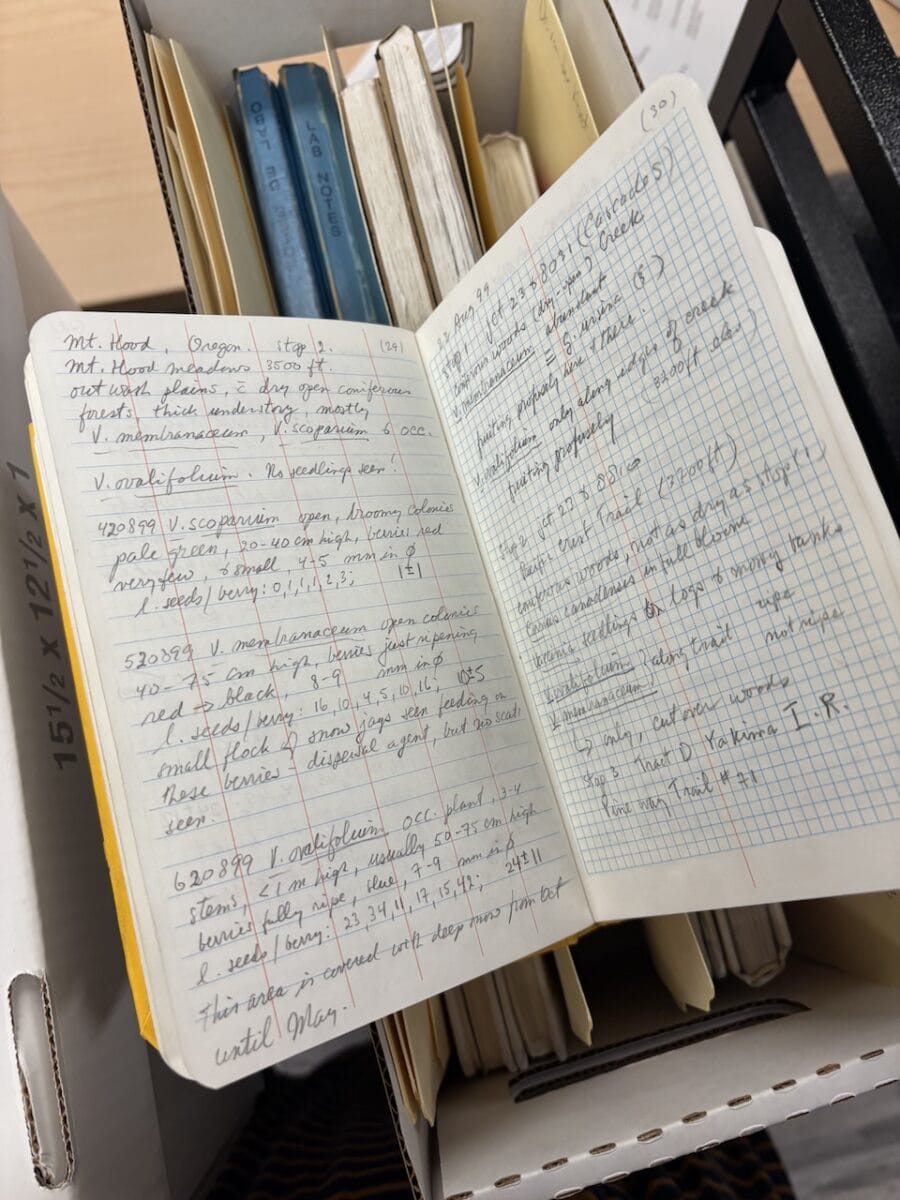 LAB NOTES
15 1/2 x 12 1/2 x 1
Mt. Hood, Oregon. stop 2. (29)
Mt. Hood meadows 3500 ft.
out wash plains, c̄ dry open coniferous
forests, thick understory, mostly
V. membranaceum, V. scoparium & occ.
V. ovalifolium. No seedlings seen!
420899 V. scoparium open, broomy colonies
pale green, 20-40 cm high, berries red
very few, & small, 4-5 mm in ϕ
l. seeds/berry: 0,1,1,1,2,3; 1±1
520899 V. membranaceum open colonies
40-75 cm high, berries just ripening
red → black, 8-9 mm in ϕ
l. seeds/berry: 16,10,4,5,10,16; 10±5
small flock of snow jays seen feeding on
these berries - dispersal agent, but no scats
seen.
620899 V. ovalifolium occ. plant, 3-4
stems, <1 m high, usually 50-75 cm high
berries fully ripe, blue, 7-9 mm in ϕ
l. seeds/berry: 23,34,11,17,15,42; 24±11
This area is covered with deep snow from Oct
until May.
(30)
22 Aug 99
Stop 1 Jct 23 & 8031 (Cascades)
coniferous woods (dry, open) Creek
V. membranaceum abundant
fruiting profusely here & there.
V. ovalifolium only along edges of creek
fruiting profusely (3200 ft elev.)
Stop 2 Jct 23 & 8810
Pacific Crest Trail (3700 ft)
coniferous woods, not as dry as stop (1)
Cornus canadensis in full bloom
seedlings on logs & mossy banks
V. ovalifolium } along trail ripe
V. membranaceum } not ripe
↳ only, cut over woods
Stop 3 Tract D Yakima I.R.
Pine way Trail #71